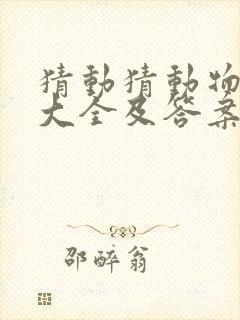 猜動猜動物
大全及答案
邵醉翁